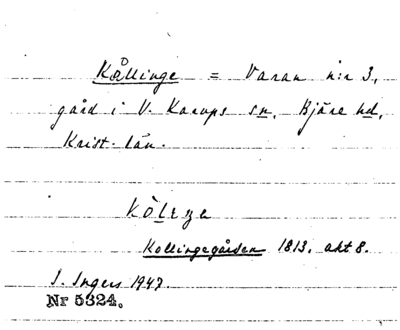 Kållinge = Varan n:r 3,
gård i V. Karups sn, Bjäre hd,
Krist. län.
Kollingegården 1813, akt 8.
I. Ingers 1947.
Nr 5324.